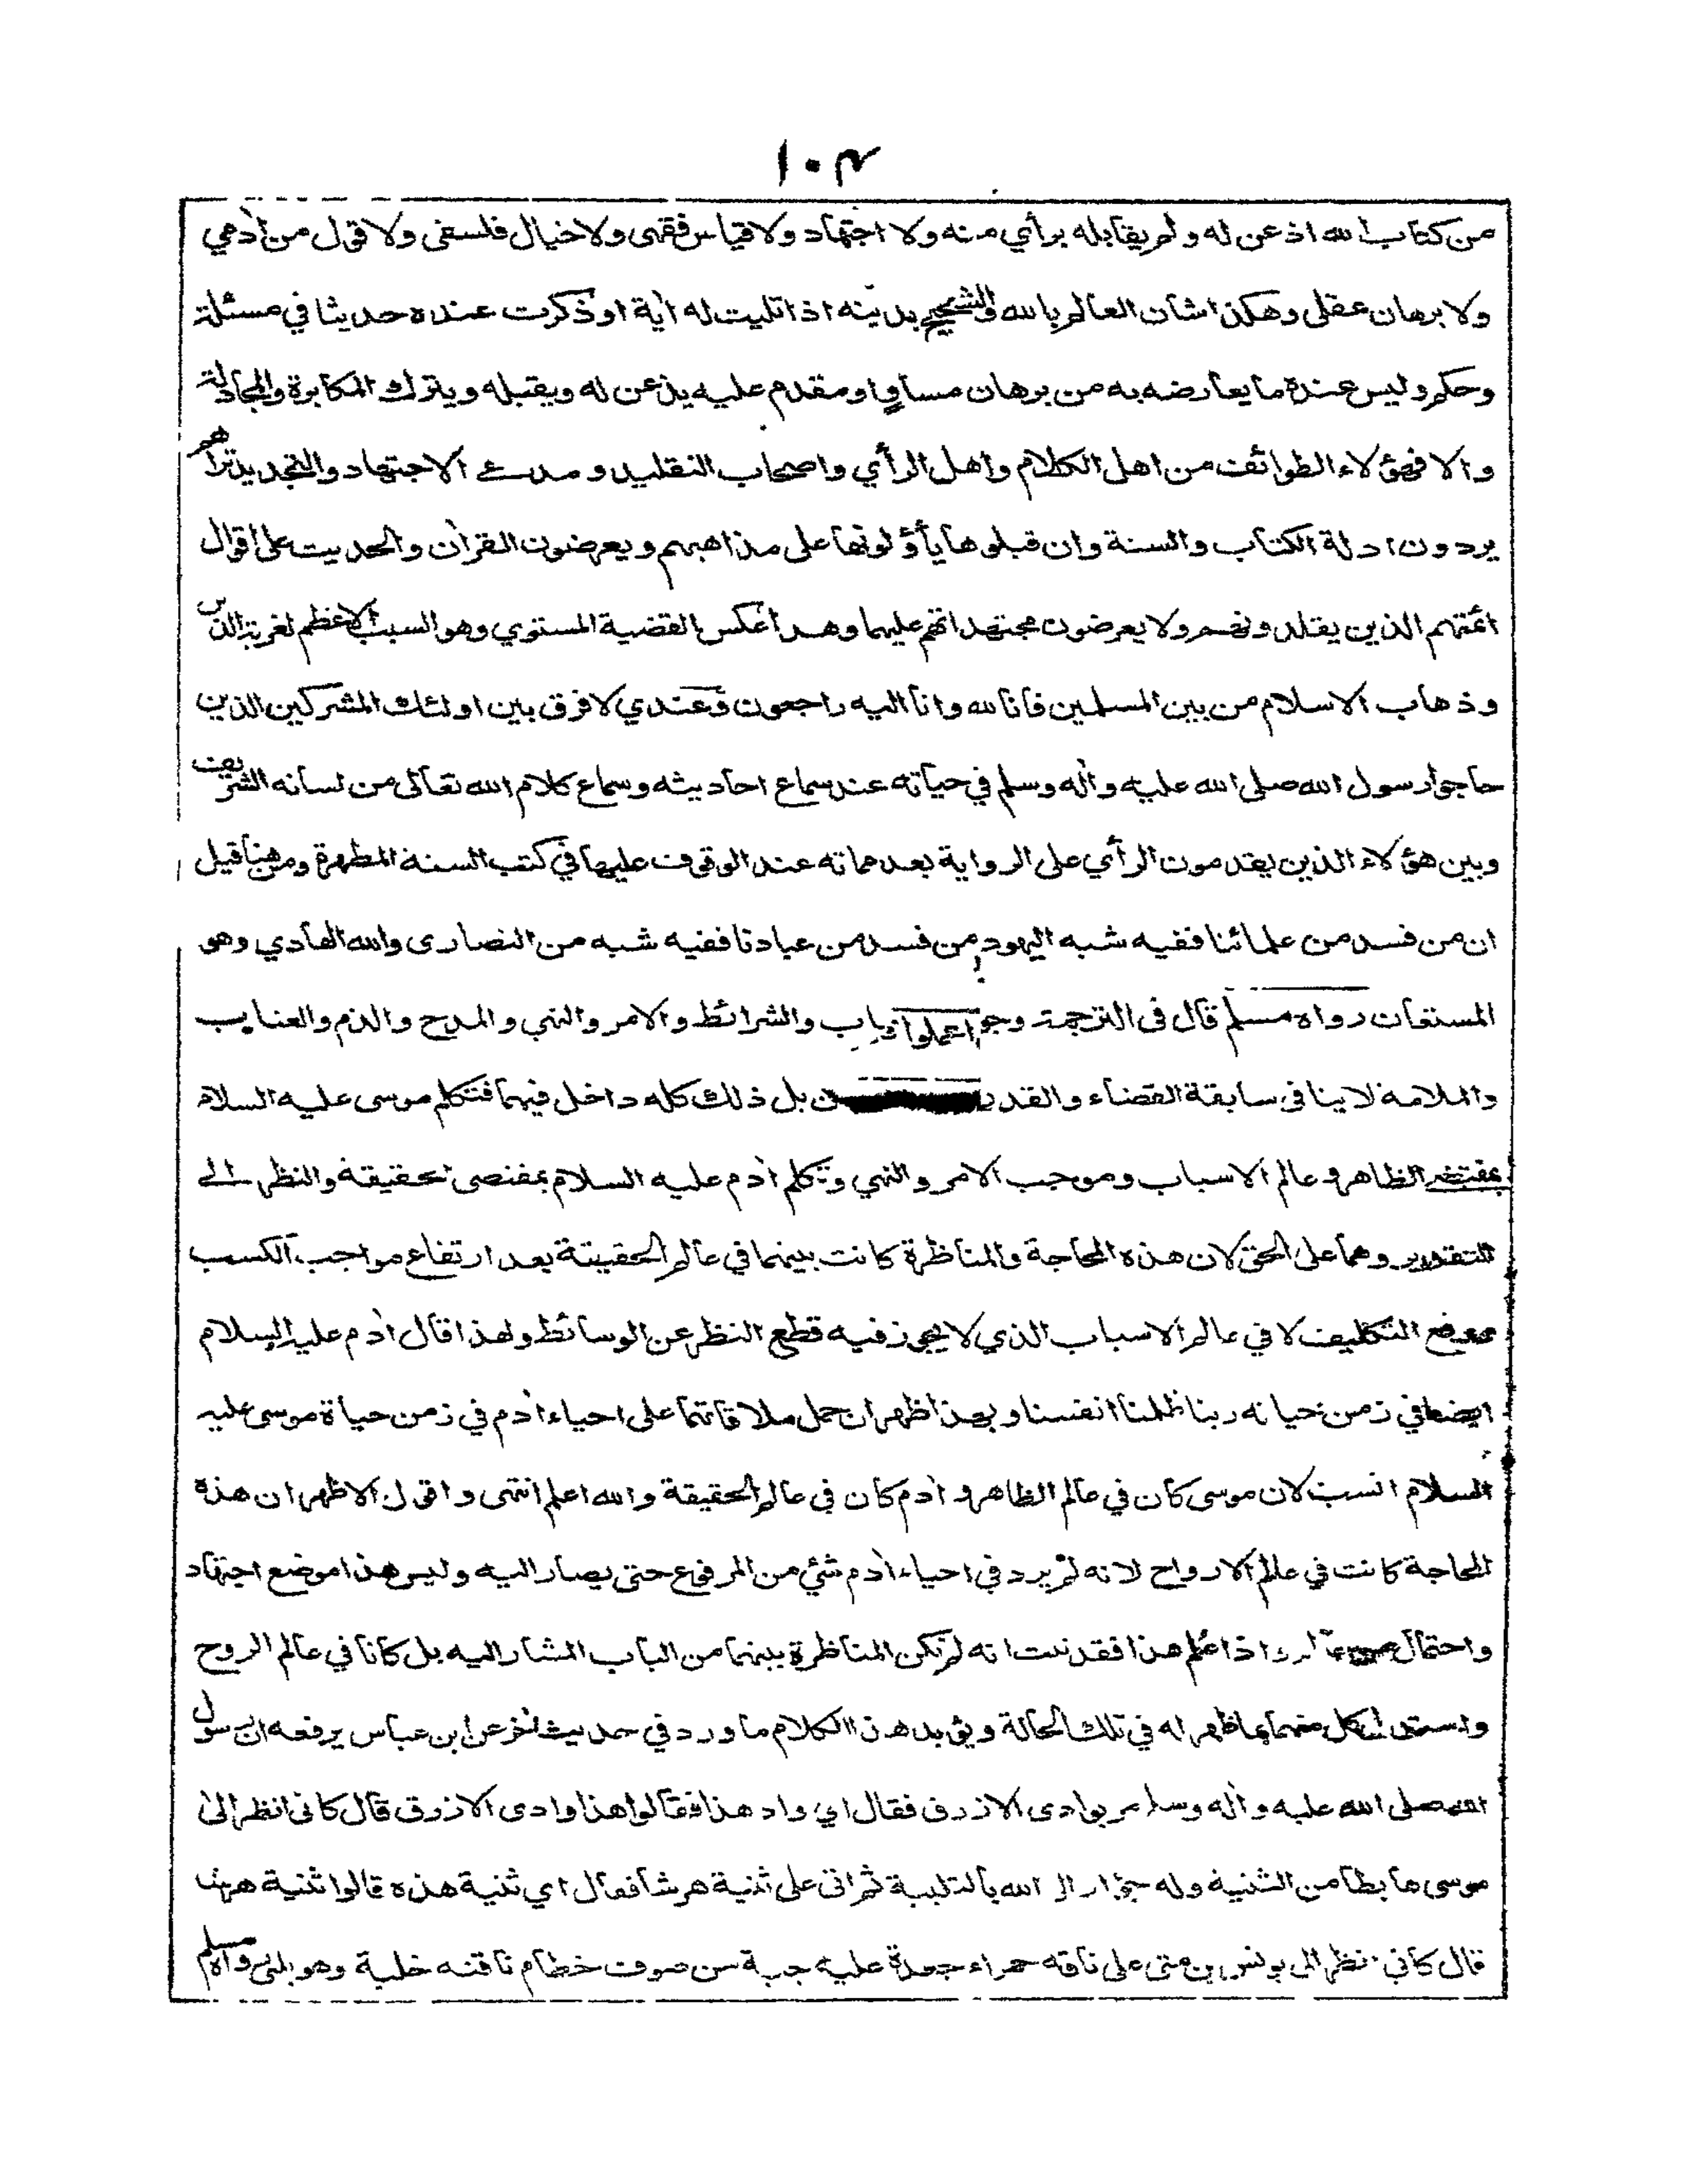 ١٠٣
من كتاب الله اذعن له ولم يقابله برأي منه ولا اجتهاد ولا قياس فقهى ولا خيال فلسفى ولا قول من أدمي
ولا برهان عقلى وهكذا شان العالم بالله والشحيح بدينه اذا تليت له أية او ذكرت عنده حديثا في مسئلة
وحكم وليس عنده ما يعارضه به من برهان مساوٍ او مقدم عليه يذعن له ويقبله ويترك المكابرة والمجادلة
والا فهؤلاء الطوائف من اهل الكلام واهل الرأي واصحاب التقليد ومدعي الاجتهاد والتجديد تراهم
يردون ادلة الكتاب والسنة وان قبلوها يأؤلونها على مذاهبهم ويعرضون القرأن والحديث على اقوال
ائمتهم الذين يقلدونهم ولا يعرضون مجتهداتهم عليهما وهذا عكس القضية المستوي وهو السبب الاعظم لغربة الدين
وذهاب الاسلام من بين المسلمين فانا لله وانا اليه راجعون وعندي لا فرق بين اولئك المشركين الذين
حاجوا رسول الله صلى الله عليه وأله وسلم في حياته عند سماع احاديثه وسماع كلام الله تعالى من لسانه الشريف
وبين هؤلاء الذين يقدمون الرأي على الرواية بعد مماته عند الوقوف عليها في كتب السنة المطهرة ومن هنا قيل
ان من فسد من علمائنا ففيه شبه اليهود ومن فسد من عبادنا ففيه شبه من النصارى والله الهادي وهو
المستعان رواه مسلم قال فى الترجمة وجو اعملوا باب والشرائط والامر والنهي والمدح والذم والعتاب
والملامة لا ينافى سابقة القضاء والقدر بل ذلك كله داخل فيهما فتكلم موسى عليه السلام
بمقتضى الظاهر وعالم الاسباب وموجب الامر والنهي وتكلم أدم عليه السلام بمقتضى الحقيقة والنظر الى
التقدير وهما على الحق لان هذه المحاجة والمناظرة كانت بينهما في عالم الحقيقة بعد ارتفاع مواجب الكسب
ورفع التكليف لا في عالم الاسباب الذي لا يجوز فيه قطع النظر عن الوسائط ولهذا قال أدم عليه السلام
ايضا في زمن حياته ربنا ظلمنا انفسنا وبهذا ظهر ان حمل ملاقاتهما على احياء أدم في زمن حياة موسى عليه
السلام انسب لان موسى كان في عالم الظاهر وأدم كان في عالم الحقيقة والله اعلم انتهى واقول الاظهر ان هذه
المحاجة كانت في عالم الارواح لانه لم يرد في احياء أدم شئ من المرفوع حتى يصار اليه وليس هذا موضع اجتهاد
واحتمال اذا علم هذا فقد ثبت انه لم تكن المناظرة بينهما من الباب المشار اليه بل كانا في عالم الروح
واستدل كل منهما بما ظهر له في تلك الحالة ويؤيد هذا الكلام ما ورد في حديث أخر عن ابن عباس يرفعه ان رسول
الله صلى الله عليه وأله وسلم مر بوادى الازرق فقال اي واد هذا فقالوا هذا وادى الازرق قال كانى انظر الى
موسى هابطا من الثنية وله جؤار الى الله بالتلبية ثم اتى على ثنية هرشا فقال اي ثنية هذه قالوا ثنية هرشا
قال كاني انظر الى يونس بن متى على ناقة حمراء جعدة عليه جبة من صوف خطام ناقته خلبة وهو يلبي رواه مسلم